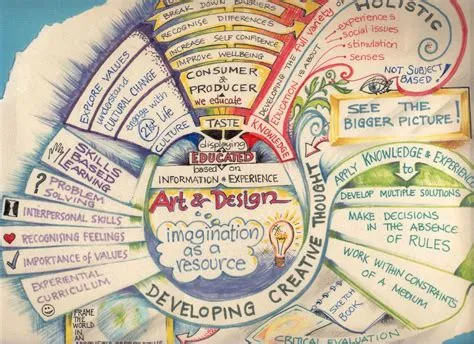 BREAK DOWN BARRIERS
RECOGNISE DIFFERENCES
INCREASE SELF CONFIDENCE
IMPROVE WELLBEING
CONSUMER
&
PRODUCER
we educate
TASTE
displaying
EDUCATED
based on
INFORMATION & EXPERIENCE
Art & Design
imagination
as a
resource
DEVELOPING CREATIVE THOUGHT
EXPLORE VALUES
understand
CULTURAL CHANGE
engage with
21st C Life
CULTURE
KNOWLEDGE
DEVELOPING THE Full Variety of
EDUCATION IS ABOUT
HOLISTIC
experiences
social issues
stimulation
senses
NOT SUBJECT
BASED!
SEE THE
BIGGER PICTURE!
APPLY KNOWLEDGE & EXPERIENCE
to
DEVELOP MULTIPLE SOLUTIONS
MAKE DECISIONS
IN THE ABSENCE
OF RULES
WORK WITHIN CONSTRAINTS
OF A MEDIUM
SKETCH
BOOK
CRITICAL EVALUATION
SKILLS
BASED
LEARNING
? PROBLEM
SOLVING
INTERPERSONAL SKILLS
RECOGNISING FEELINGS
IMPORTANCE of VALUES
EXPERIENTIAL
CURRICULUM
FRAME
THE WORLD
IN AN